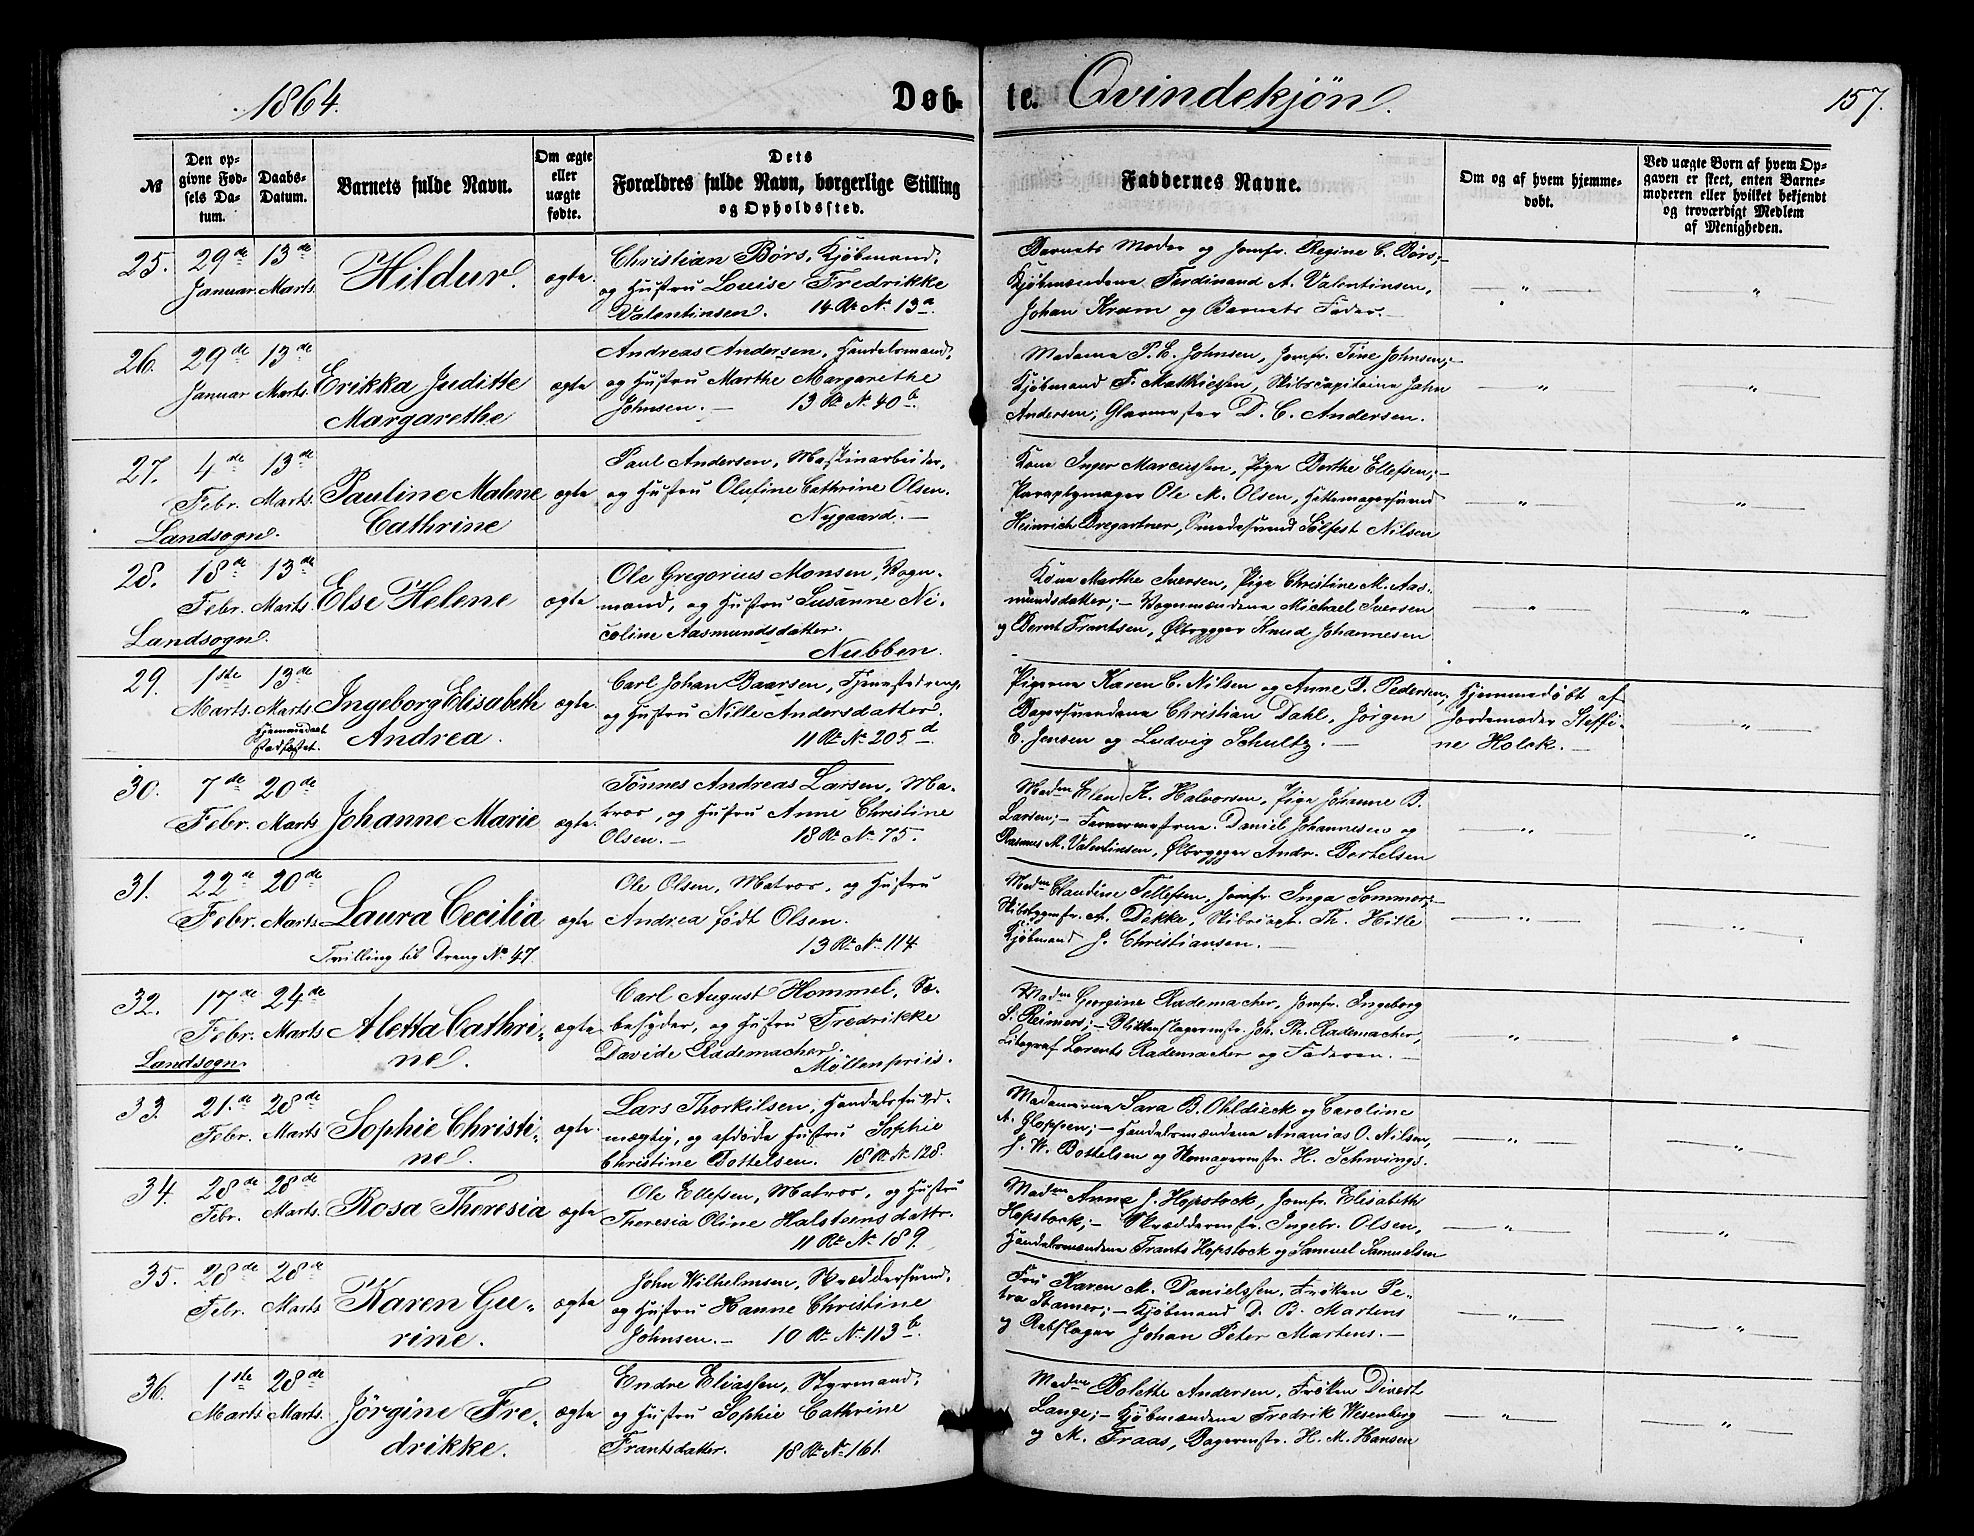 1864.
Døb-
te. Qvindekjön.
157.
№
Den op-
givne Fød-
sels Da-
tum.
Daabs-
Datum.
Barnets fulde Navn.
Om ægte
eller
uægte
fødte.
Dets
Forældres fulde Navn, borgerlige Stilling
og Opholdssted.
Faddernes Navne.
Om og af hvem hjemme-
døbt.
Ved uægte Børn af hvem Op-
gaven er skeet, enten Barne-
moderen eller hvilket bekjendt
og troværdigt Medlem
af Menigheden.
25. 29de Januar. 13de Marts. Hildur. ægte.
Christian Börs, Kjöbmand,
og Hustru Louise Fredrikke
Valentinsen. 14 Rt. N. 13a.
Barnets Moder og Jomfr. Regine C. Börs;-
Kjöbmændene Ferdinand A. Valentinsen,
Johan Kram og Barnets Fader.-
26. 29de Januar 13de Marts. Erikka Juditte
Margarethe ægte
Andreas Andersen, Handelsmand,
og Hustru Marthe Margarethe
Johnsen.- 13 Rt. N. 40b.
Madame P. E. Johnsen, Jomfr. Tine Johnsen;-
Kjöbmand F. Matthiessen, Skibscapitaine John
Andersen, Glarmester D. C. Andersen.
27. 4de Febr. 13de Marts. Pauline Malene
Cathrine ægte
Landsogn.
Paul Andersen, Maskinarbeider,
og Hustru Olufine Cathrine Olsen.
Nygaard.-
Kone Inger Marcussen, Pige Berthe Ellefsen;-
Paraplymager Ole M. Olsen, Hattemagersvend
Heinrich Bregartner, Smedesvend Sölfest Nilsen
28. 18de Febr. 13de Marts. Else Helene ægte
Landsogn.
Ole Gregorius Monsen, Vogn-
mand, og Hustru Susanne Ni-
coline Aasmundsdatter.
Nubben.
Kone Marthe Iversen, Pige Christine M. Aas-
mundsdatter;- Vognmændene Michael Iversen
og Bernt Frantsen, Ölbrygger Knud Johannesen
29. 1ste Marts. 13de Marts. Ingeborg Elisabeth
Andrea. ægte.
Hjemmedaab
stadfæstet.
Carl Johan Baarsen, Tjenestedreng,
og Hustru Nille Andersdatter.
11 Rt. N. 205d.
Pigerne Karen C. Nilsen og Anne D. Pedersen,
Bagersvendene Christian Dahl, Jörgen
E. Jensen og Ludvig Schultz.-
Hjemmedöbt af
Jordemoder Steffi-
ne Holck.-
30. 7de Febr. 20de Marts Johanne Marie ægte.
Tönnes Andreas Larsen, Ma-
tros, og Hustru Anne Christine
Olsen.- 18 Rt. N. 75.
Madm Elen K. Halvorsen, Pige Johanne B.
Larsen;- Farvermesterne Daniel Johannesen og
Rasmus M. Valentinsen, Ölbrygger Andr. Bertelsen
31. 22de Febr. 20de Marts Laura Cecilia ægte
Tvilling til Dreng No 47.
Ole Olsen, Matros, og Hustru
Andrea födt Olsen.
13 Rt. N. 114
Madm Claudine Tellefsen, Jomfr. Inga Sommer;-
Skibsbygmstr. A. Dekke, Skibsrept. Th. Hille
Kjöbmand J. Christiansen.-
32. 17de Febr. 24de Marts Aletta Cathri-
ne. ægte
Landsogn.
Carl August Hommel, Sæ-
besyder, og Hustru Fredrikke
Davide Rademacher.
Möllenpriis.
Madm Georgine Rademacher, Jomfr. Ingeborg
S. Reimers;- Blikkenslagermstr. Joh. Th. Rademacher,
Litograf Lorents Rademacher og Faderen.-
33. 21de Febr. 28de Marts Sophie Christi-
ne. ægte.
Lars Thorkilsen, Handelsfuld-
mægtig, og afdöde Hustru Sophie
Christine Bottelsen. 18 Rt. N. 128.
Madamerne Sara B. Ohldieck og Caroline
A. Gloppen;- Handelsmændene Ananias O. Nilsen,
J. W. Bottelsen og Uhrmagermstr. H. Schwings.
34. 28de Febr. 28de Marts. Rosa Theresia ægte
Ole Ellefsen, Matros, og Hustru
Theresia Oline Halsteensdattr.
11 Rt. N. 189.
Madm Anne J. Hopstock, Jomfr. Elisabeth
Hopstock;- Skræddermstr. Ingebr. Olsen,
Handelsmændene Frants Hopstock og Samuel Samuelsen
35. 28de Febr. 28de Marts Karen Gu-
rine. ægte
John Wilhelmsen, Skræddersvend,
og Hustru Hanne Christine
Johnsen.- 10 Rt. N. 113b.
Fru Karen M. Danielssen, Fröken Pe-
tra Stamer;- Kjöbmand D. B. Martens
og Rebslager Johan Peter Martens.-
36. 1ste Marts 28de Marts. Jörgine Fre-
drikke. ægte
Endre Eliassen, Styrmand,
og Hustru Sophie Cathrine
Frantsdatter. 18 Rt. N. 161.
Madm Bolette Andersen, Fröken Divert
Lange;- Kjöbmændene Fredrik Wesenberg
og M. Fraas, Bagermstr. H. M. Hansen